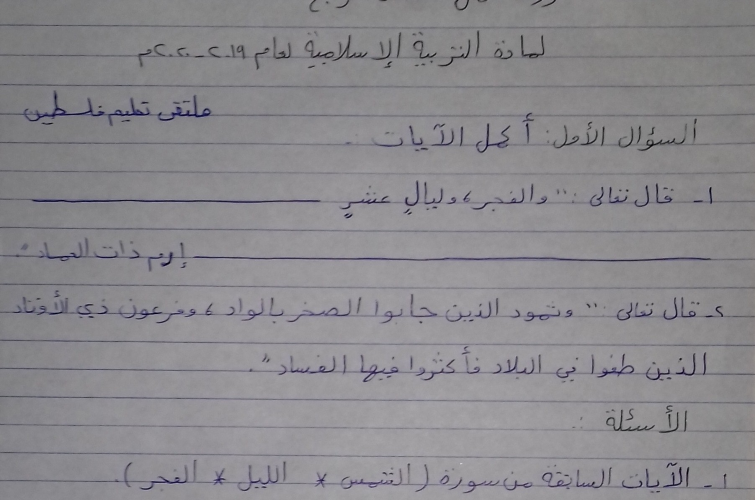 لمادة التربية الإسلامية لعام ٢٠١٩-٢٠٢٠م
ملتقى تعليم فلسطين
السؤال الأول: أكمل الآيات .
١- قال تعالى : " والفجر، وليالٍ عشرٍ
إرم ذات العماد ".
٢- قال تعالى : " وثمود الذين جابوا الصخر بالواد ، وفرعون ذي الأوتاد
الذين طغوا في البلاد فأكثروا فيها الفساد ".
الأسئلة :
١- الآيات السابقة من سورة ( الشمس * الليل * الفجر ).